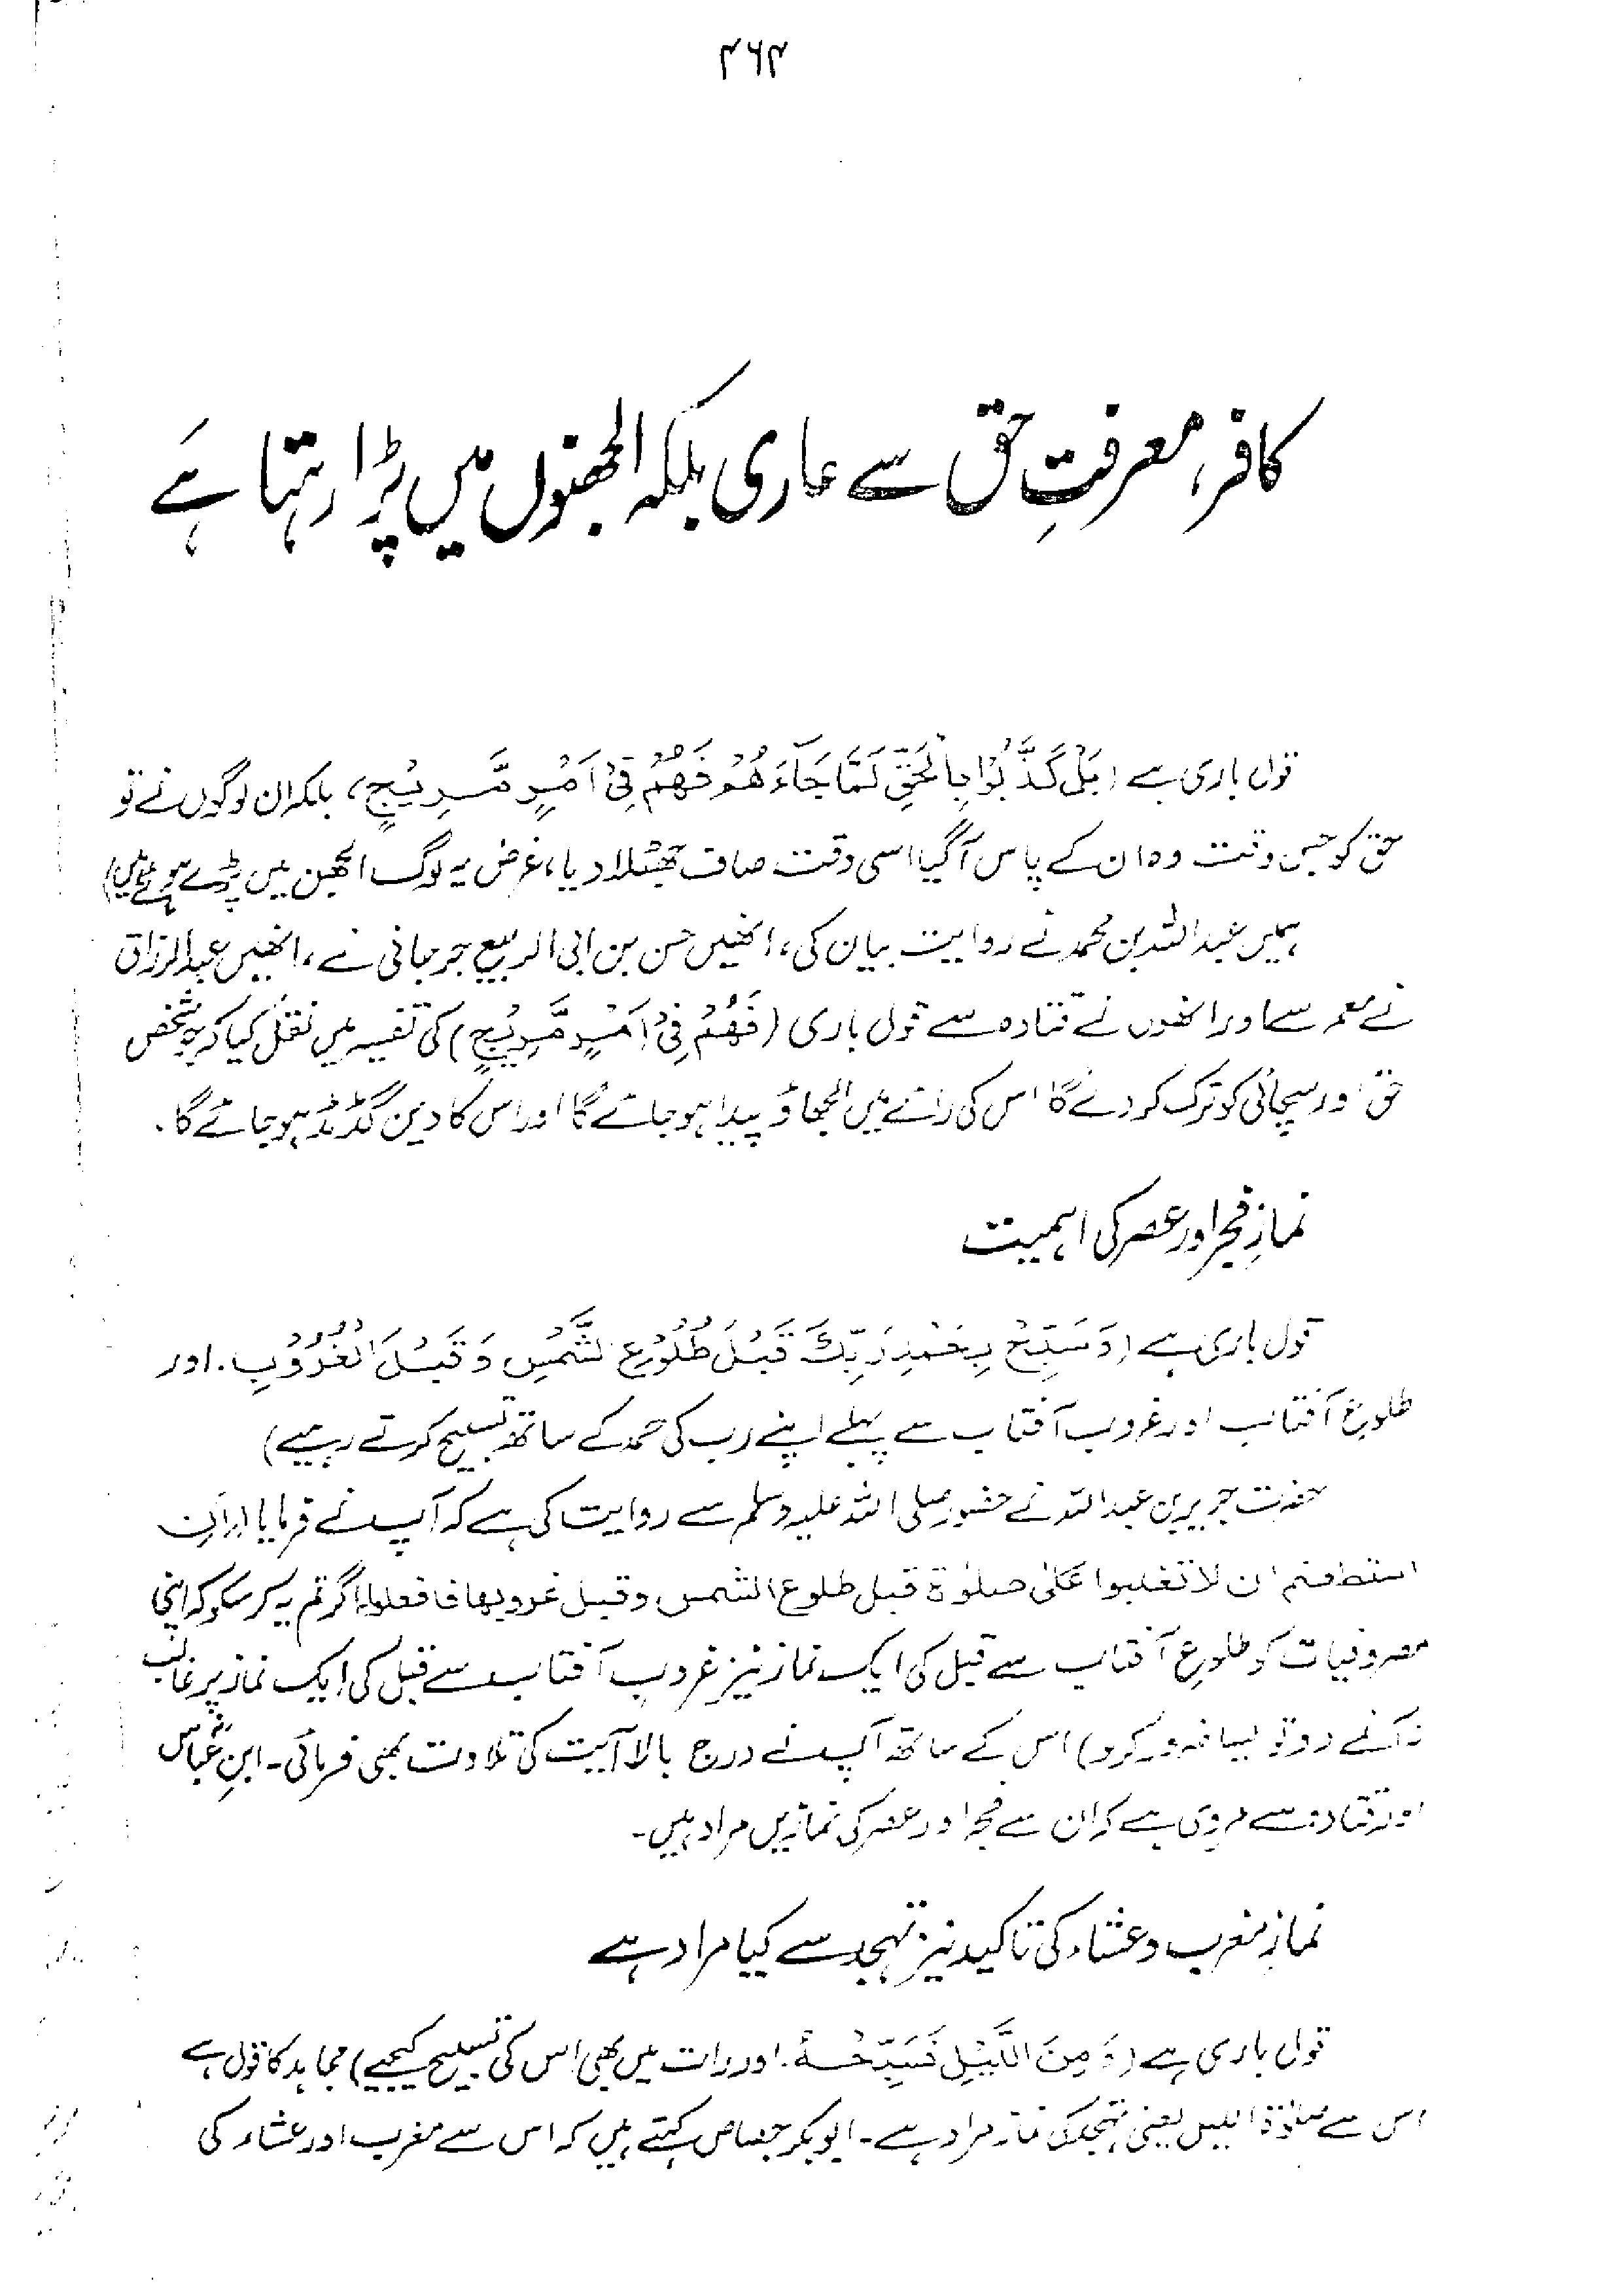 ۴۶۴
کافر، معرفتِ حق سے عاری بلکہ الجھنوں میں پڑا رہتا ہے
قول باری ہے (بَلْ كَذَّبُوْا بِالْحَقِّ لَمَّا جَآءَهُمْ فَهُمْ فِيْ اَمْرٍ مَّرِيْجٍ، بلکہ ان لوگوں نے تو
حق کو جس وقت وہ ان کے پاس آگیا اسی وقت صاف جھٹلا دیا، غرض یہ لوگ الجھن میں پڑے ہوئے ہیں)
ہمیں عبداللہ بن محمد نے روایت بیان کی، انھیں حسن بن ابی الربیع جرجانی نے، انھیں عبدالرزاق
نے معمر سے اور انھوں نے قتادہ سے قول باری (فَهُمْ فِيْ اَمْرٍ مَّرِيْجٍ) کی تفسیر میں نقل کیا کہ جو شخص
حق اور سچائی کو ترک کر دے گا اس کی رائے میں الجھاؤ پیدا ہو جائے گا اور اس کا دین گڈمڈ ہو جائے گا.
نمازِ فجر اور عصر کی اہمیت
قول باری ہے (وَسَبِّحْ بِحَمْدِ رَبِّكَ قَبْلَ طُلُوْعِ الشَّمْسِ وَقَبْلَ الْغُرُوْبِ. اور
طلوعِ آفتاب اور غروب آفتاب سے پہلے اپنے رب کی حمد کے ساتھ تسبیح کرتے رہیے)
حضرت جریر بن عبداللہ نے حضور صلی اللہ علیہ وسلم سے روایت کی ہے کہ آپ نے فرمایا (ان
استطعتم ان لا تغلبوا علی صلوٰة قبل طلوع الشمس وقبل غروبها فافعلوا، اگر تم یہ کر سکو کہ اپنی
مصروفیات کو طلوعِ آفتاب سے قبل کی ایک نماز نیز غروبِ آفتاب سے قبل کی ایک نماز پر غالب
نہ آنے دو تو ایسا ضرور کرو) اس کے ساتھ آپ نے درج بالا آیت کی تلاوت بھی فرمائی۔ ابنِ عباسؓ
اور قتادہ سے مروی ہے کہ ان سے فجر اور عصر کی نمازیں مراد ہیں۔
نمازِ مغرب و عشاء کی تاکید نیز تہجد سے کیا مراد ہے
قول باری ہے (وَمِنَ اللَّيْلِ فَسَبِّحْهُ. اور رات میں بھی اس کی تسبیح کیجیے) مجاہد کا قول ہے
اس سے صلوٰۃ اللیل یعنی تہجد کی نماز مراد ہے۔ ابوبکر جصاص کہتے ہیں کہ اس سے مغرب اور عشاء کی